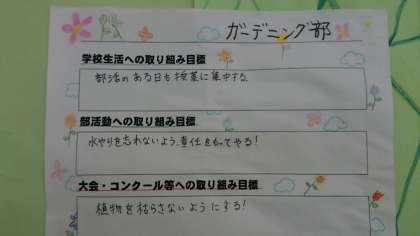 ガーデニング部
学校生活への取り組み目標
部活のある日も授業に集中する。
部活動への取り組み目標
水やりを忘れないよう、責任をもってやる!
大会・コンクール等への取り組み目標
植物を枯らさないようにする!